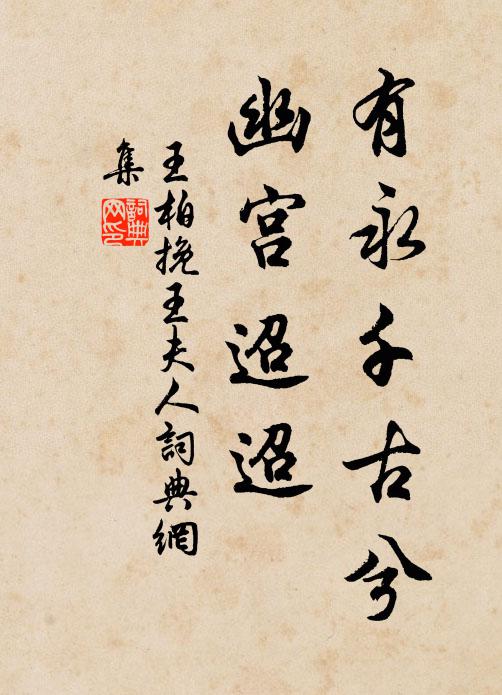 有永千古兮
幽宫迢迢
王柏挽王夫人詞典網
集
詞典
网印